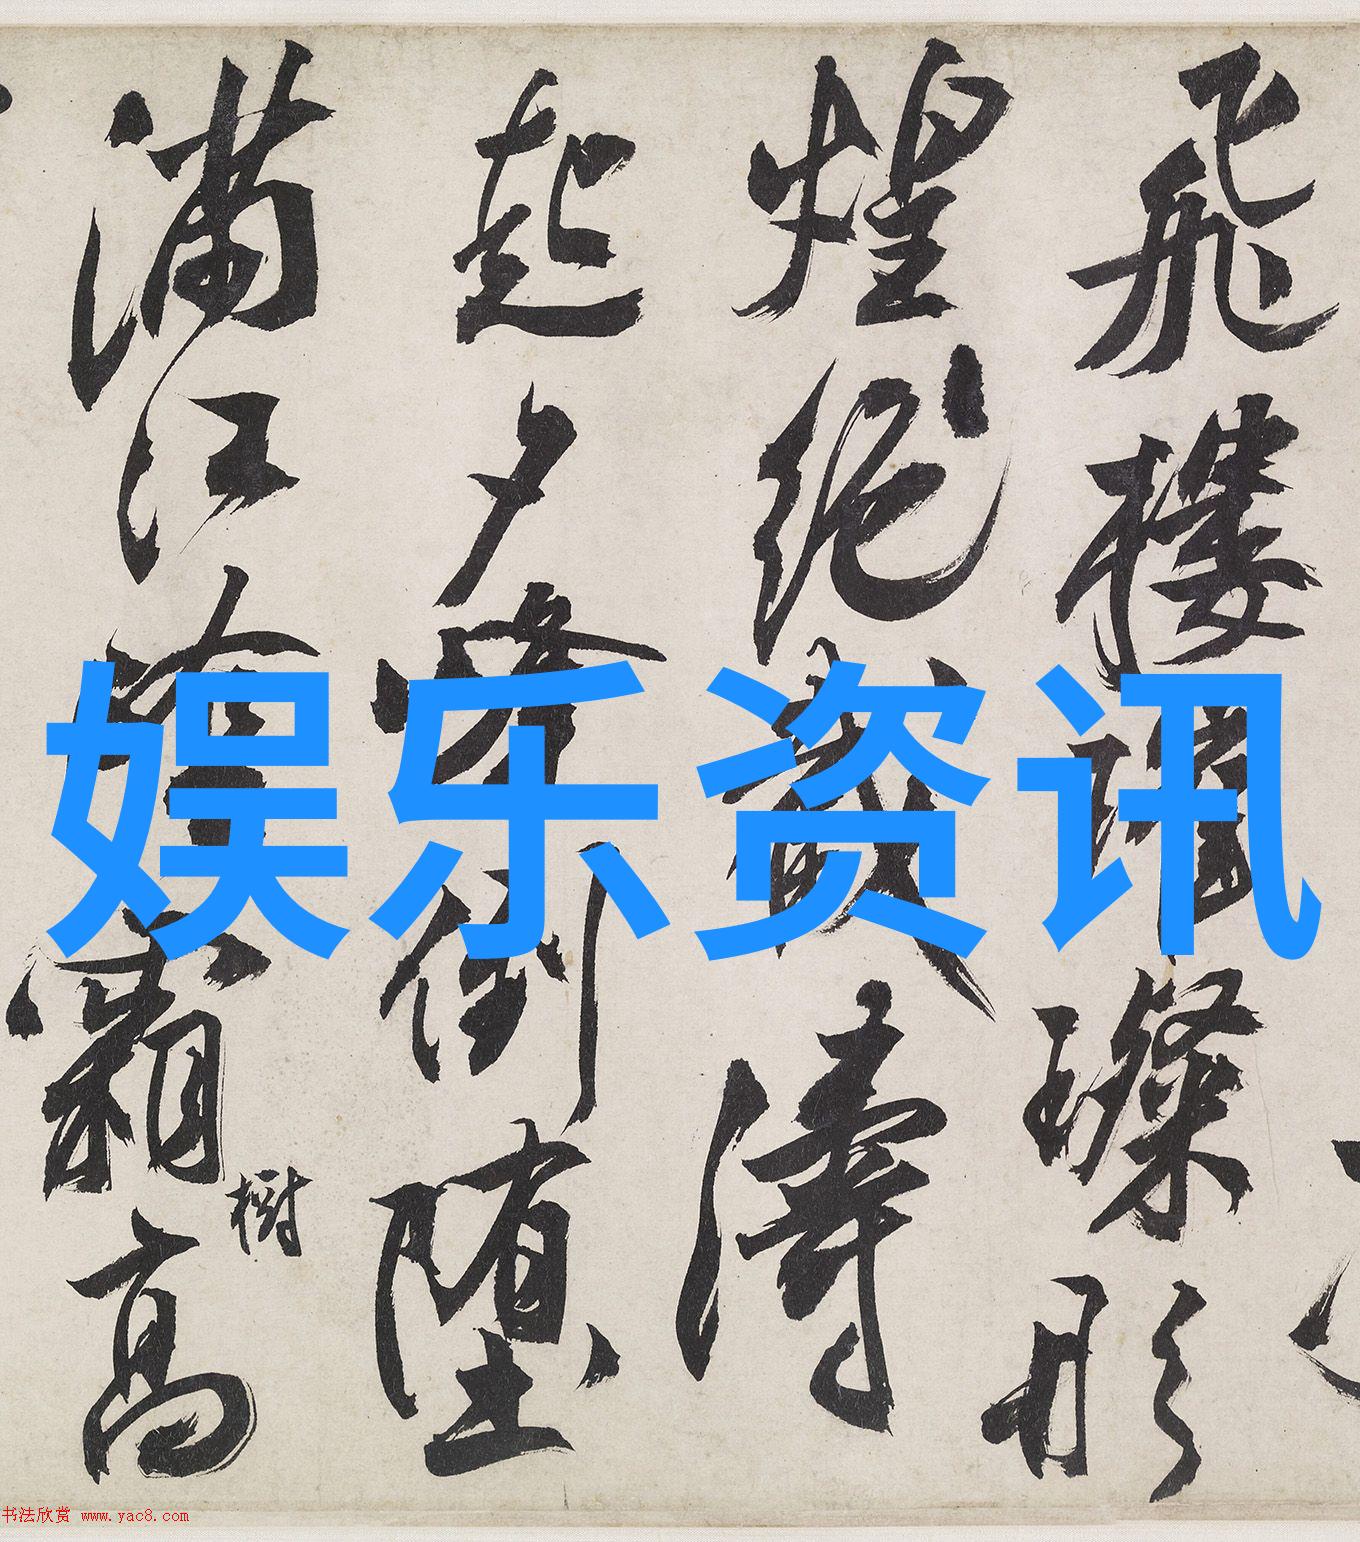 飛樓璨
煌絕濤
起夕倒墮
滿江霜高
樹
娱乐资讯
书法欣赏 www.yac8.com